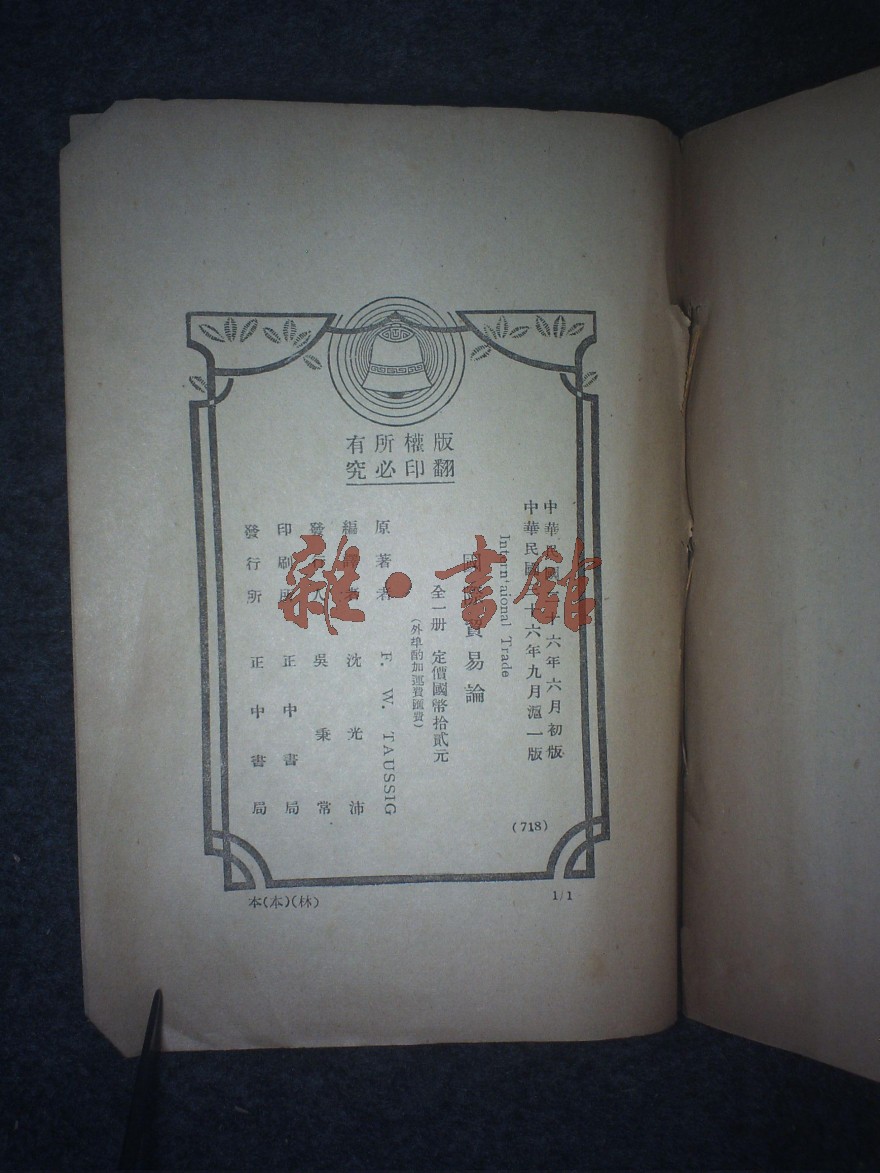 版權所有
翻印必究
中華民國三十六年六月初版
中華民國三十六年九月滬一版
(718)
Intern'aional Trade
國際貿易論
全一册 定價國幣拾貳元
(外埠酌加運費匯費)
原著者 F. W. TAUSSIG
編譯者 沈光沛
發行人 吳秉常
印刷所 正中書局
發行所 正中書局
本(本)(林)
1/1
雜·書館